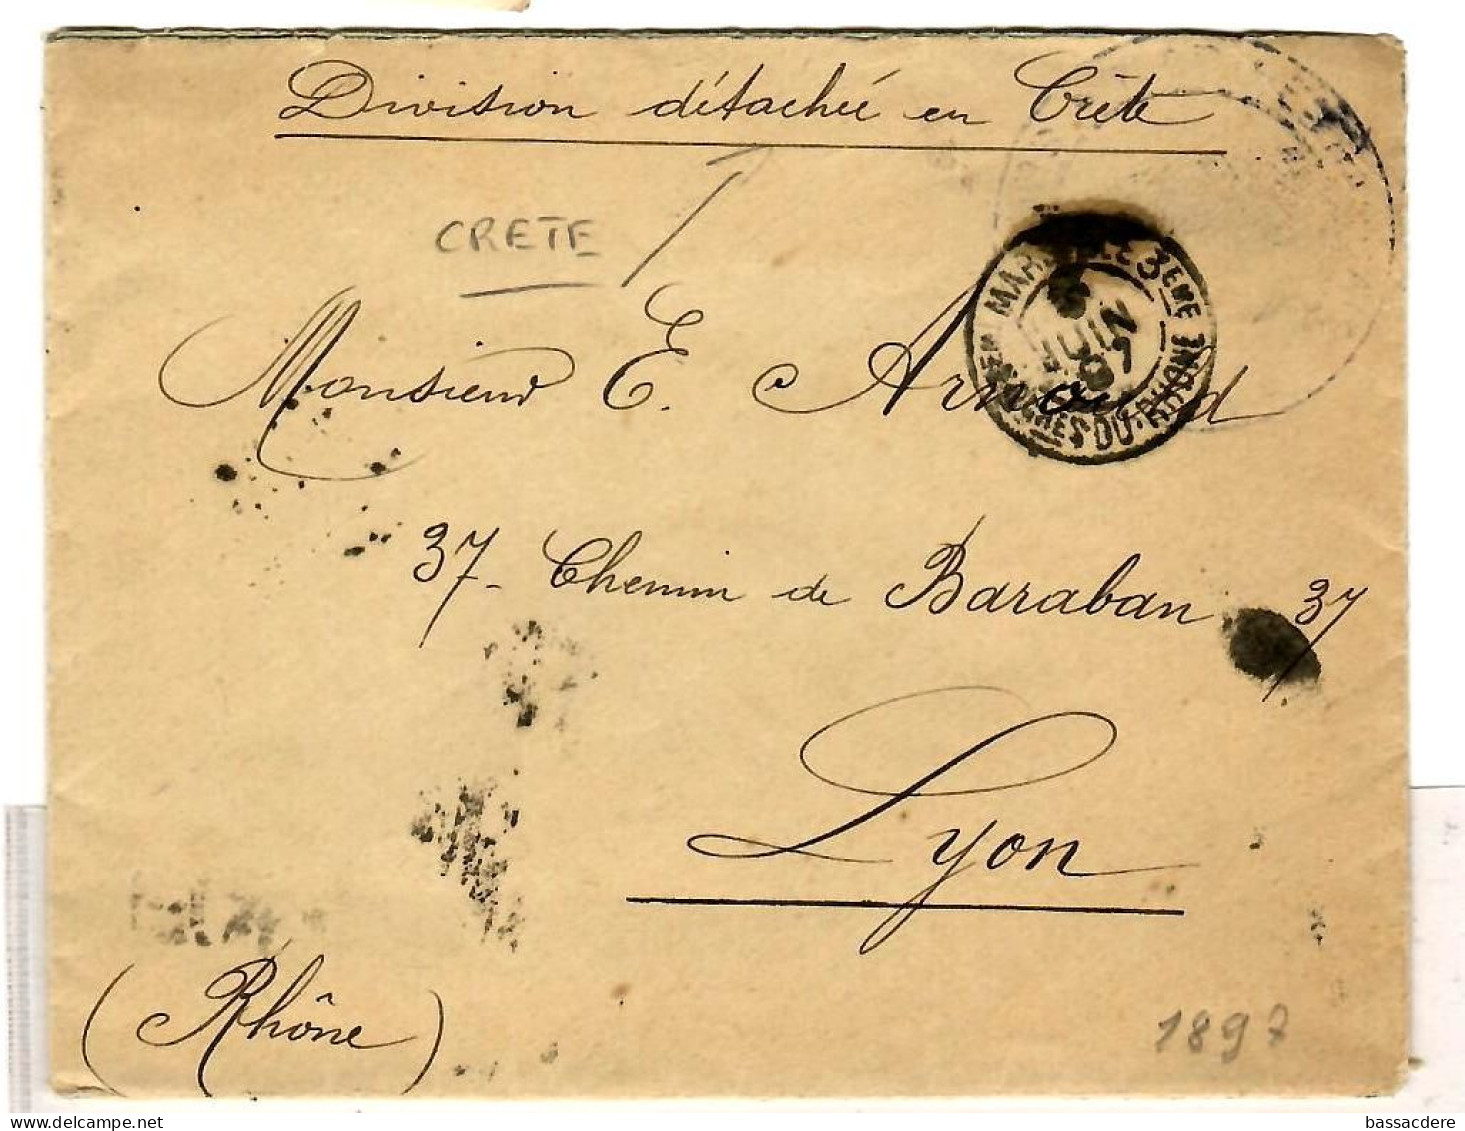 Division détachée en Crète
CRETE
MARSEILLE 3EME
JUIN
97
BOUCHES DU RHONE
Monsieur E. Arnoud
37 - Chemin de Baraban 37
Lyon
(Rhône)
1897
bassacdere